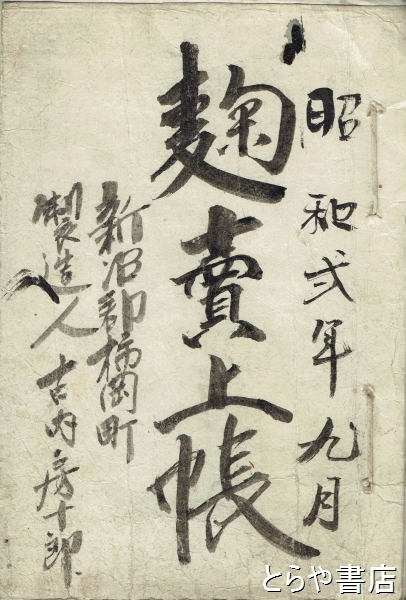 昭和弐年九月
麹賣上帳
新治郡柿岡町
製造人 吉内房十郎
とらや書店